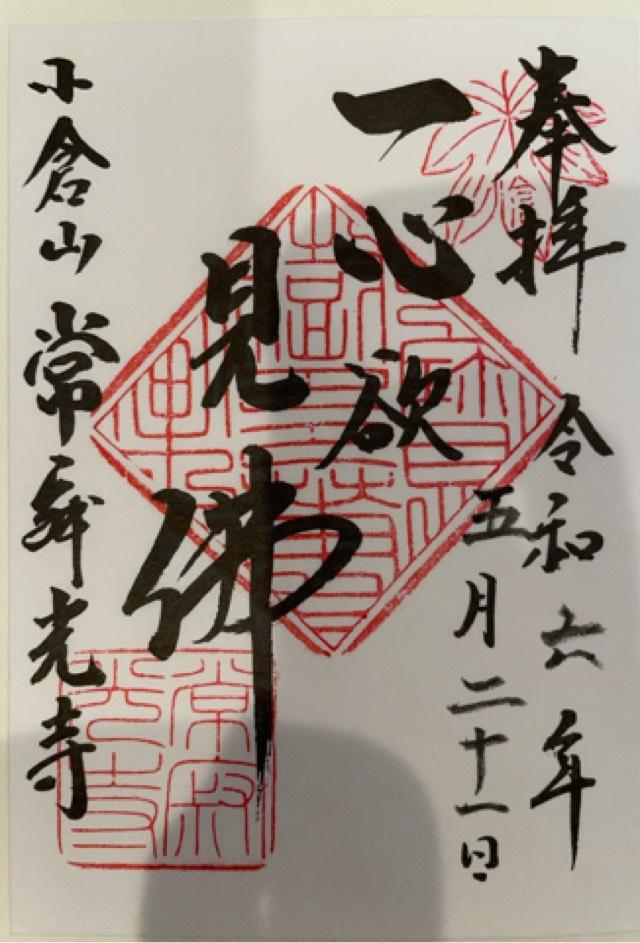 奉拝 令和六年
五月二十一日
一心欲
見佛
小倉山 常寂光寺
常寂光寺